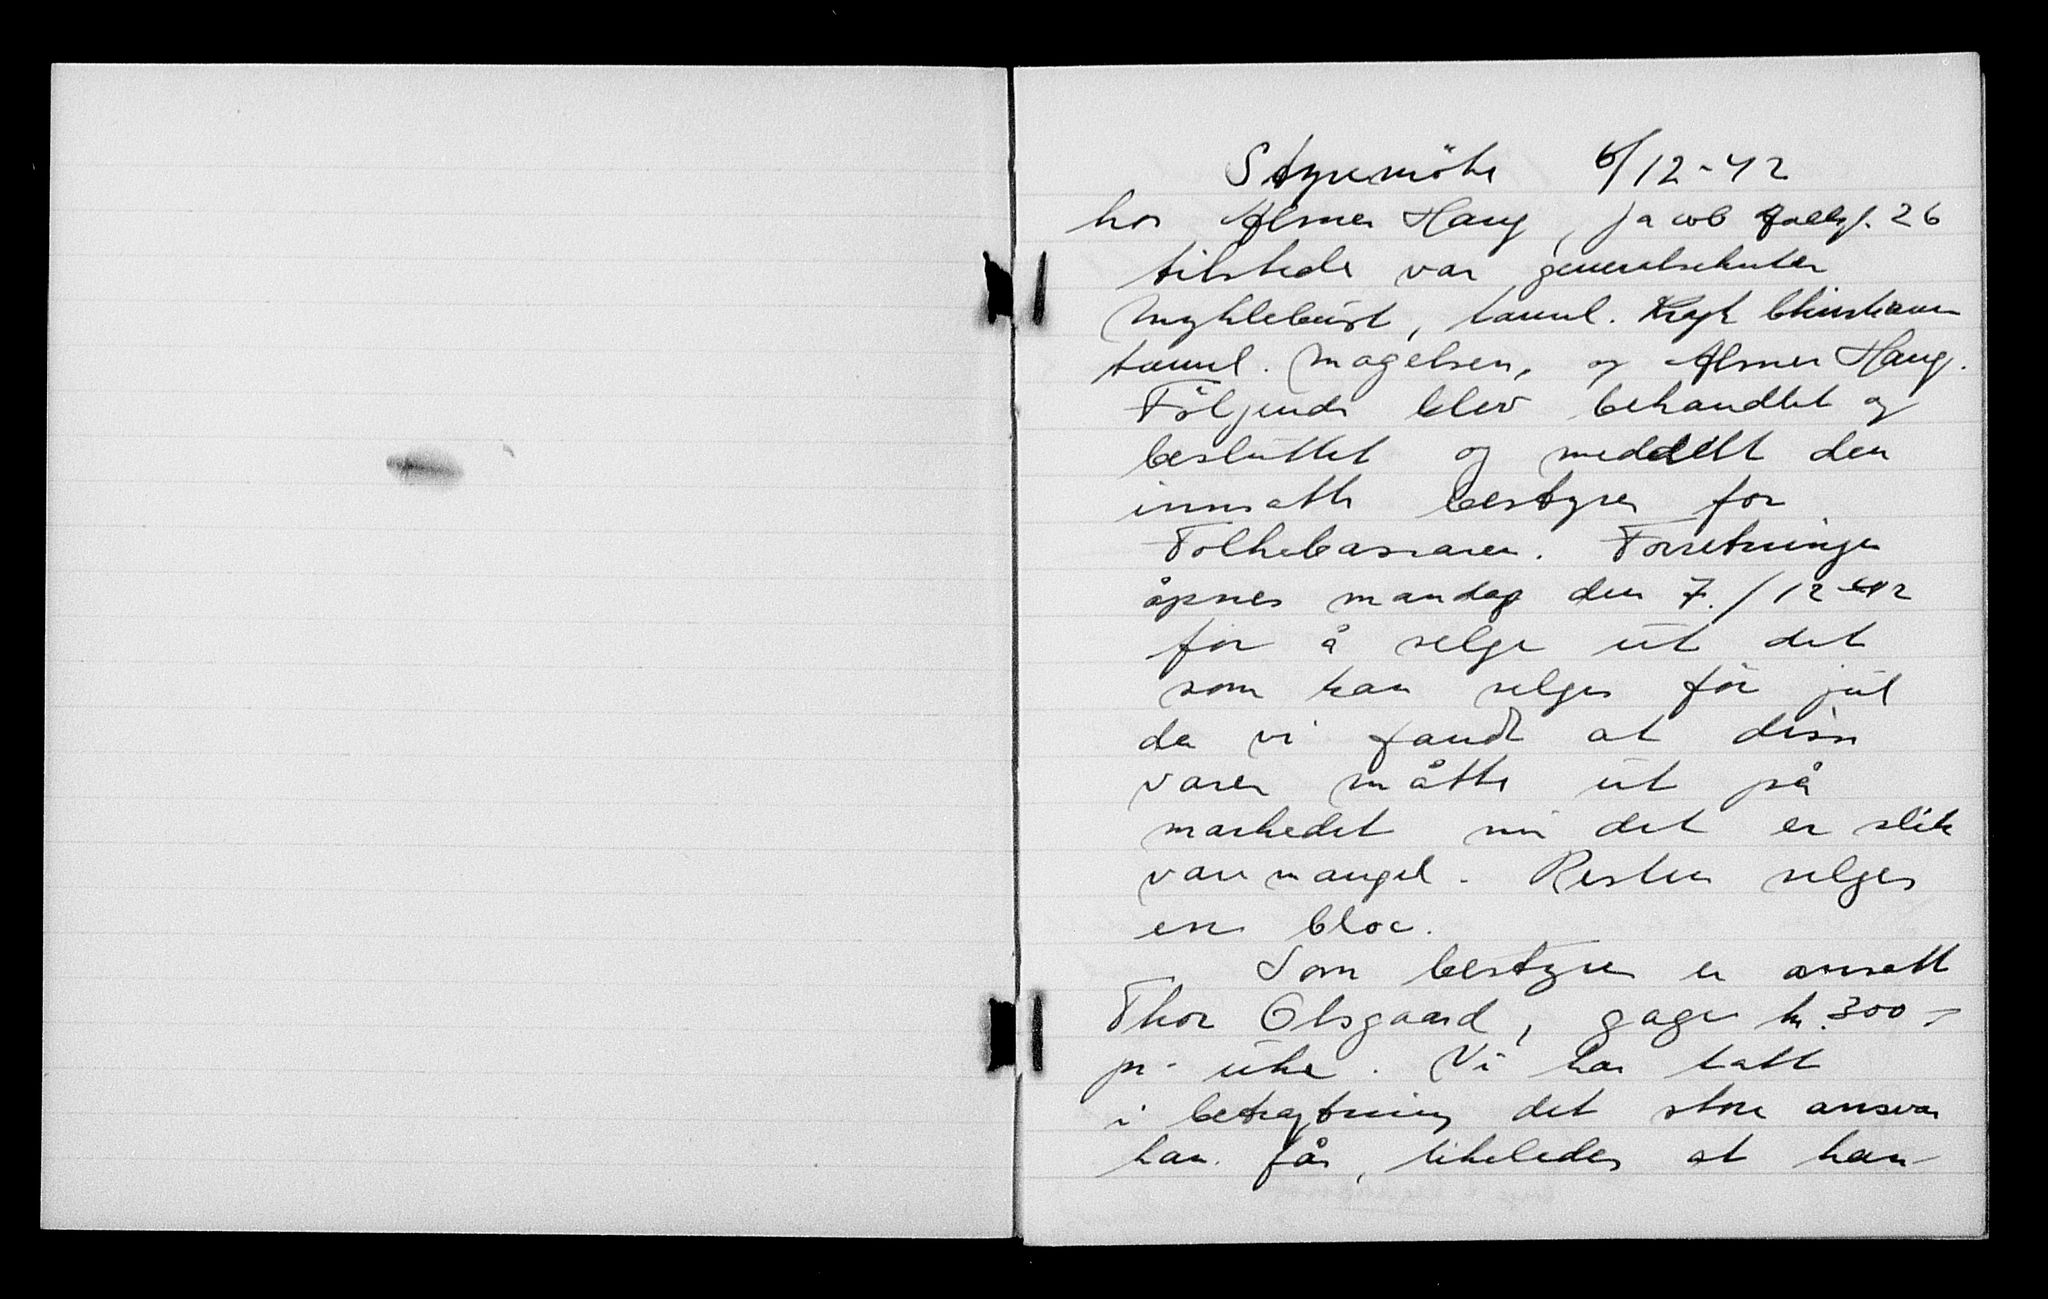 Styremöte 6/12-42
hos Asmer Haug, Jacob Aallsgt. 26
tilstede var generalsekretær
Myklebust, tannl. Kragh Christiansen
tannl. Magelsen, og Asmer Haug.
Följende blev behandlet og
besluttet og meddelt den
innsatte bestyrer for
Folkebasaren. Forretningen
åpnes mandag den 7./12-42
for å selge ut det
som kan selges för jul
da vi fandt at disse
varer måtte ut på
markedet nu det er slik
varemangel. Resten selges
en bloc.
Som bestyrer er ansatt
Thor Olsgaard, gage kr. 300-
pr. uke. Vi har tatt
i betragtning det store ansvar
han får, likeledes at han